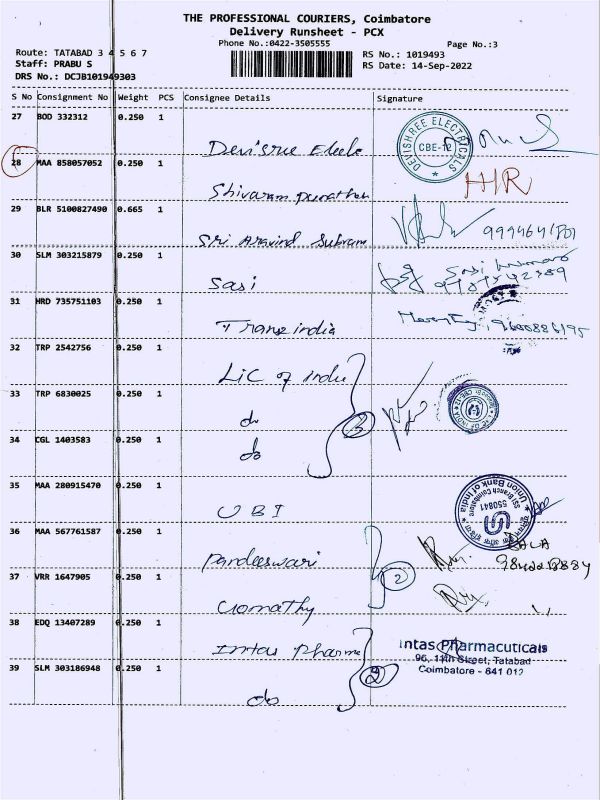 THE PROFESSIONAL COURIERS, Coimbatore
Delivery Runsheet - PCX
Phone No.:0422-3505555
Page No.:3
Route: TATABAD 3 4 5 6 7
RS No.: 1019493
Staff: PRABU S
RS Date: 14-Sep-2022
DRS No.: DCJB101949303
S No Consignment No Weight PCS Consignee Details Signature
27 BOD 332312 0.250 1
Devisree Electe
DEVISHREE ELECTRICALS
CBE-12
28 MAA 858057052 0.250 1
H/R
29 BLR 5100827490 0.665 1
Sri Aravind
30 SLM 303215879 0.250 1
Sasi
31 HRD 735751103 0.250 1
Transindia
9600886195
32 TRP 2542756 0.250 1
LIC of India
33 TRP 6830025 0.250 1
do
3
34 CGL 1403583 0.250 1
do
35 MAA 280915470 0.250 1
UBI
Union Bank of India
SSI Branch Coimbatore
550841
36 MAA 567761587 0.250 1
Pandeeswari
2
37 VRR 1647905 0.250 1
Gomathy
38 EDQ 13407289 0.250 1
Intas Pharma
Intas Pharmacuticals
96, 11th Street, Tatabad
Coimbatore - 641 012
39 SLM 303186948 0.250 1
2
do